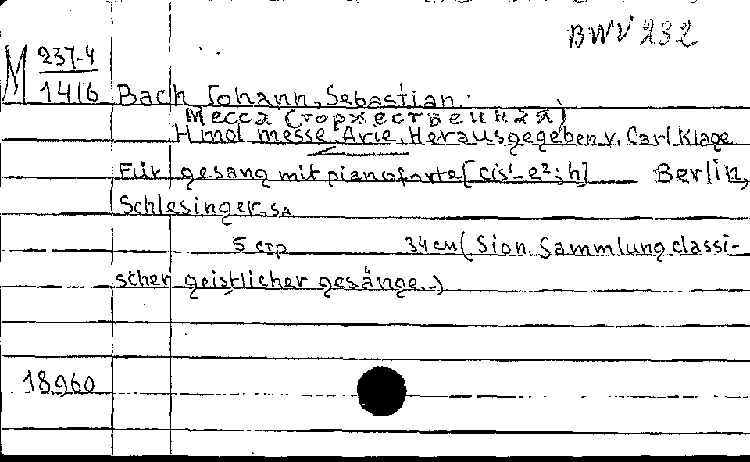 BWV 232
M 237-4
1416 Bach Johann, Sebastian.
Месса (торжественная)
H mol messe Arie. Herausgegeben v. Carl Klage
Für gesang mit pianoforte [cis¹-e²; h] Berlin,
Schlesinger, SA
5 стр 34 см (Sion. Sammlung classi-
scher geistlicher gesänge.)
18960